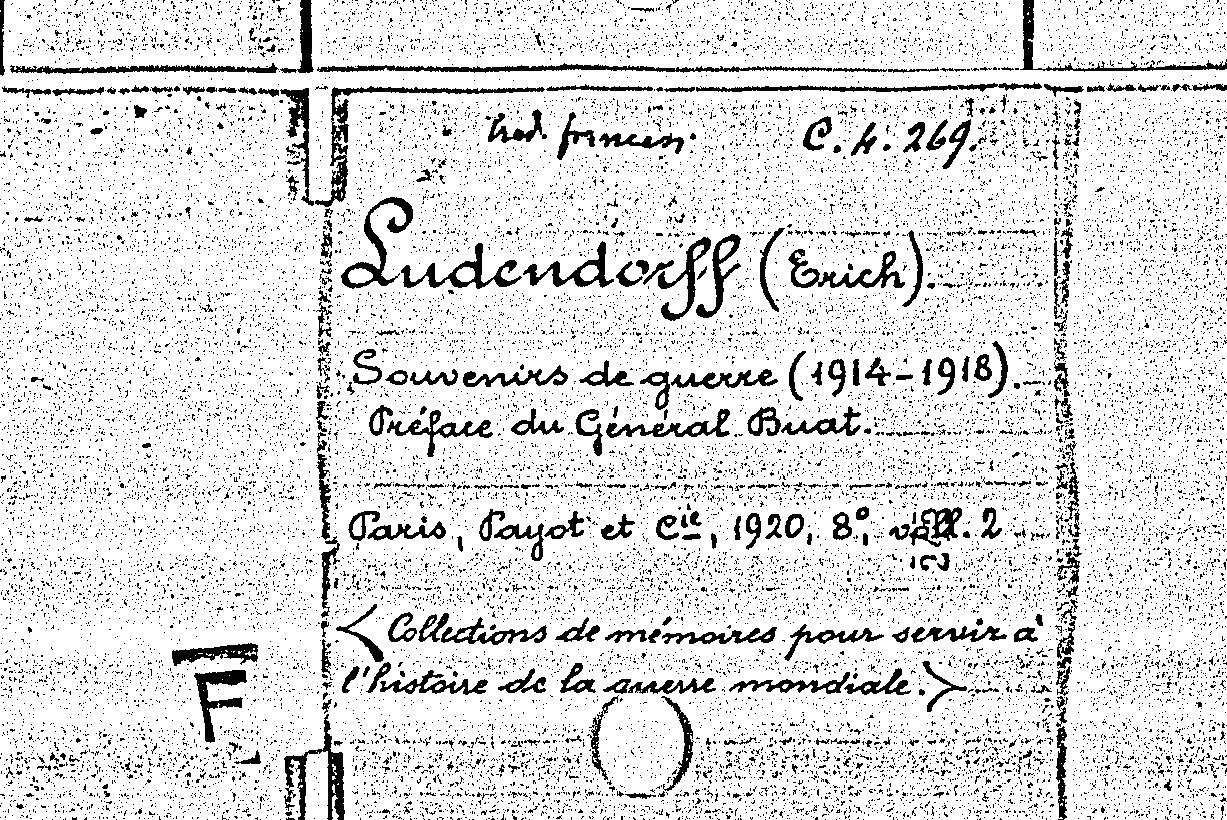 trad. francese C. 4. 269.
Ludendorff (Erich).
Souvenirs de guerre (1914-1918).
Préface du Général Buat.
Paris, Payot et Cie, 1920, 8°, voll. 2
<Collections de mémoires pour servir à
l'histoire de la guerre mondiale.>
F